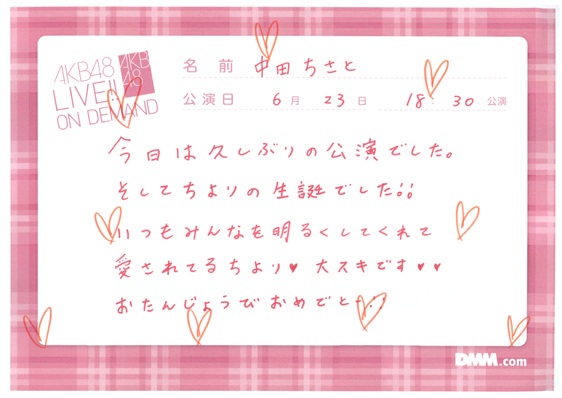 AKB48
LIVE!!
ON DEMAND
AKB
48
名前 中田ちさと
公演日 6月 23日 18:30公演
今日は久しぶりの公演でした。
そしてちよりの生誕でした!!
いつもみんなを明るくしてくれて
愛されてるちより♥ 大スキです♥♥
おたんじょうびおめでと
DMM.com